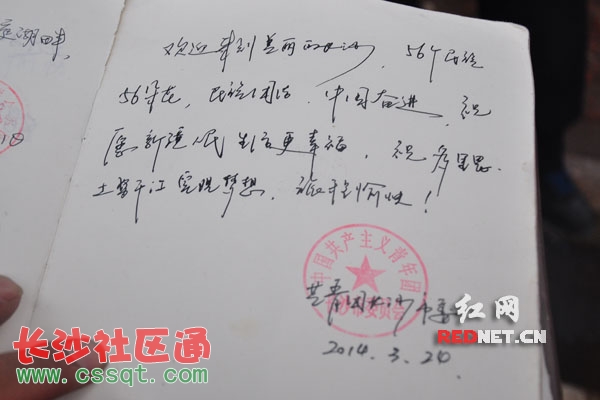 湖畔,
欢迎来到美丽的长沙, 56个民族
56朵花, 民族团结. 中国奋进, 祝
愿新疆人民生活更幸福, 祝多里思.
土等于江实现梦想, 旅程愉快!
中国共产主义青年团
市委员会
共青团长沙市委
2014.3.20
红网
REDNET.CN
长沙社区通
www.cssqt.com